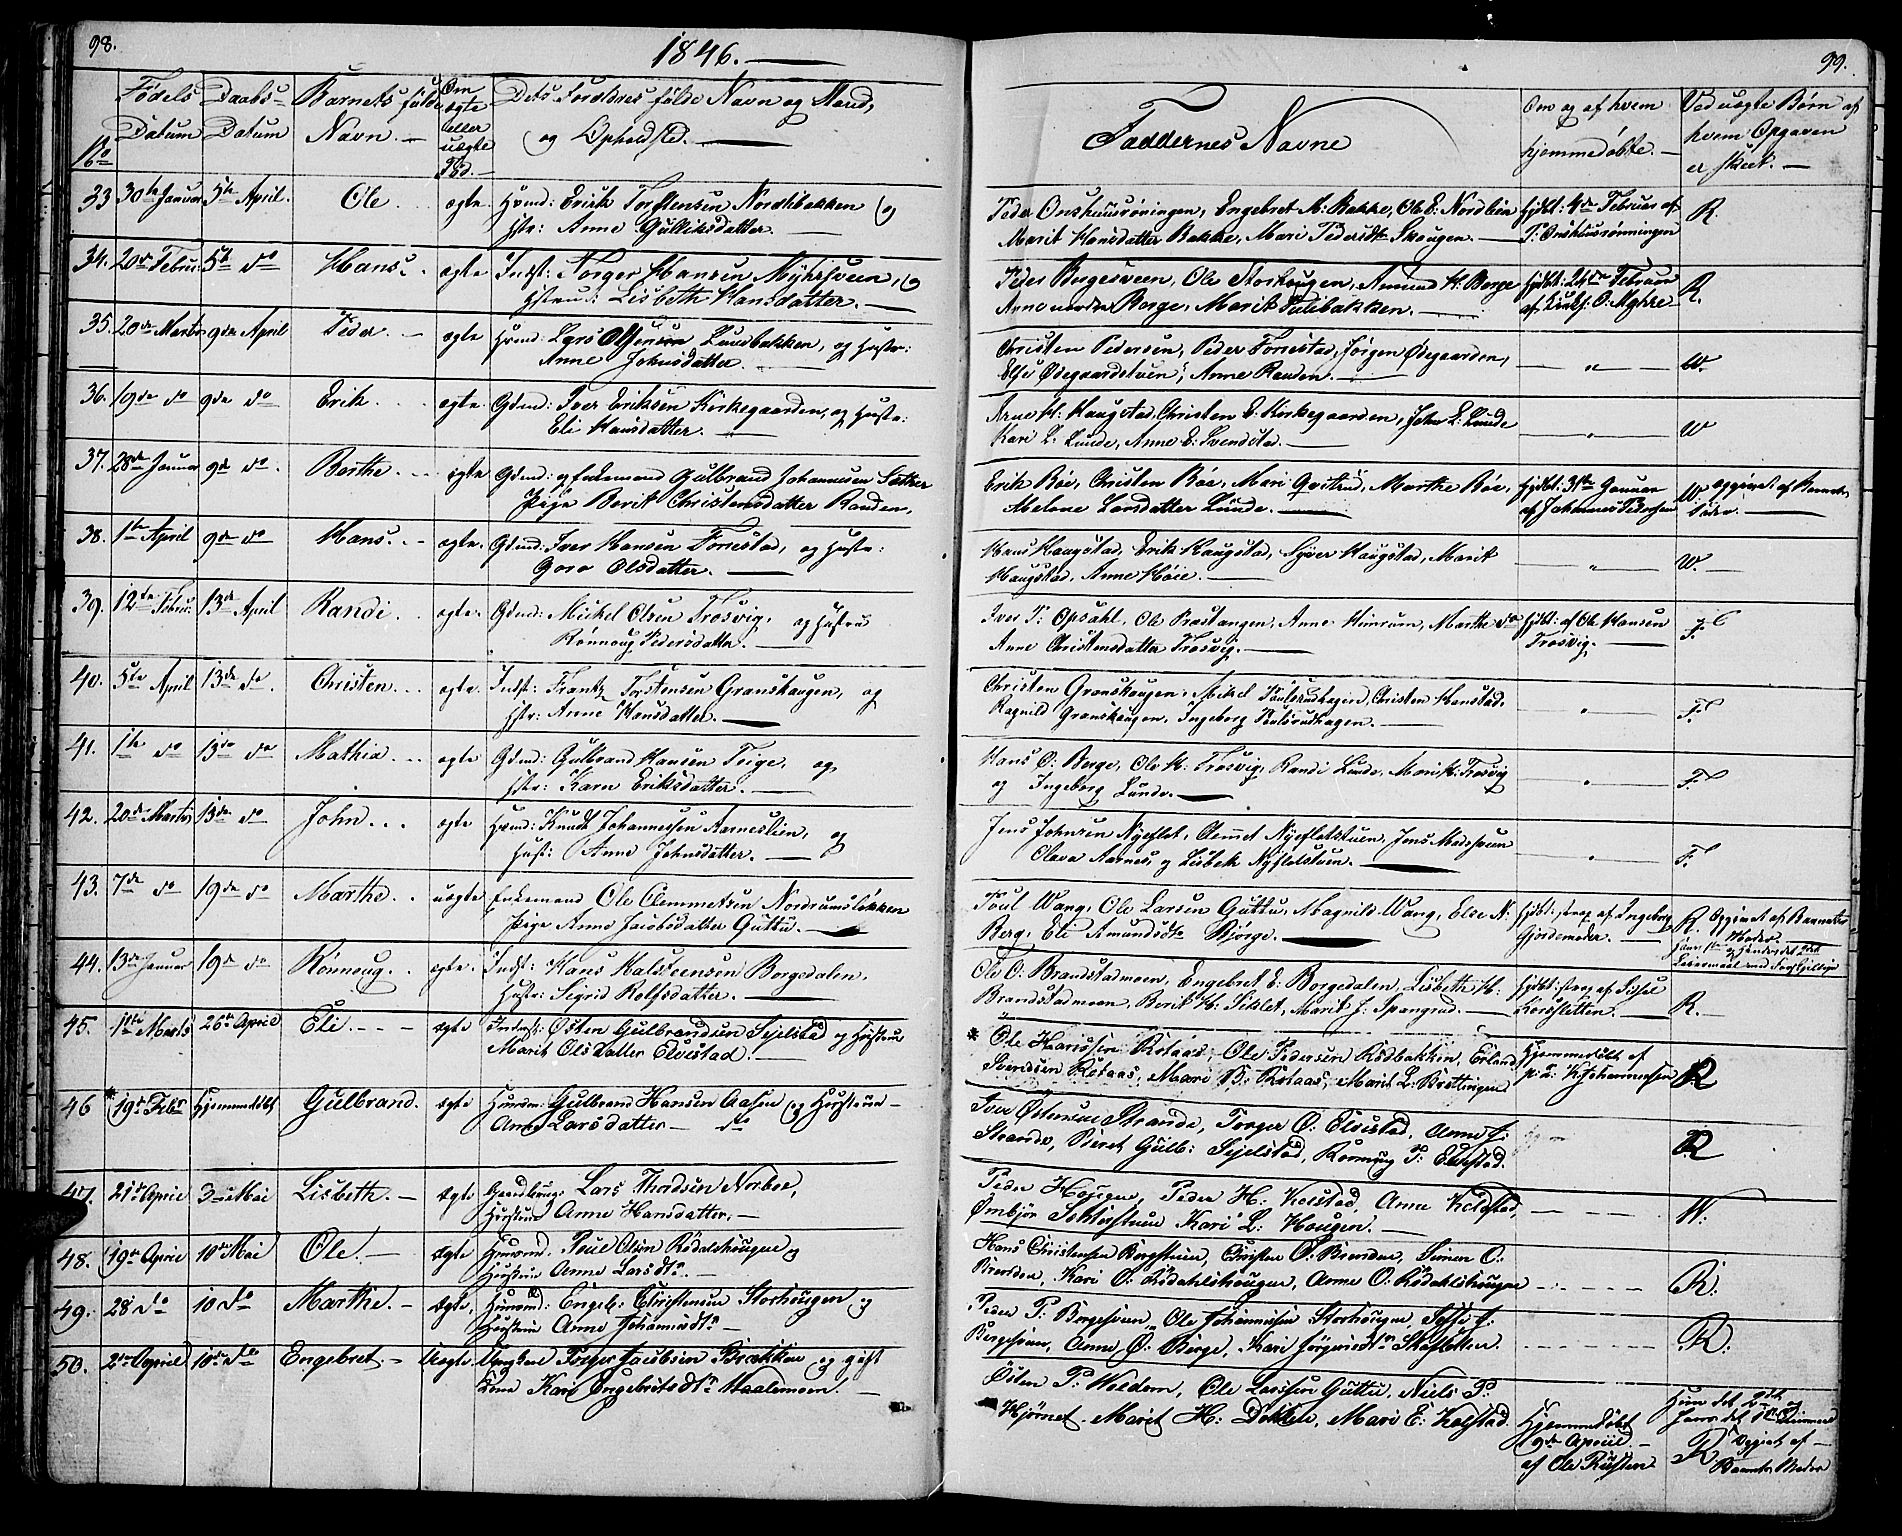 98.
1846.
No
Fødels Datum
Daabs Datum
Barnets fulde Navn.
Om ægte eller uægte Fød.
Dets Forældres fulde Navn og Stand, og Opholdsted.
33 30te Januar 5te April. Ole ægte. Hvmd: Erich Torstensen Nordlibakken og
Hstr: Anne Gulliksdatter.
34. 20de Febru: 5te do Hans. ægte Indst: Torger Hansen Myhrsveen, og
Hstrue: Lisbeth Hansdatter.
35. 20de Marts 9de April Peder. ægte Hvmd: Lars Olsen Lundbakken, og Hustr:
Anne Johnsdatter.
36. 19de do 9de do Erik. ægte Gdmd: Iver Eriksen Kirkegaarden, og Hustr:
Eli Hansdatter.
37. 28de Januar 9de do. Berthe. uægte Gdmd: og Enkemand Gulbrand Johannesen Sæther
Pige Berit Christensdatter Randen.
38. 1te April 9de do Hans. ægte. Gdmd: Iver Hansen Forrestad, og Hustr:
Goro Olsdatter.
39. 12te Febru: 13de April Randi. ægte. Gdmd: Mikkel Olsen Trosvig, og Hustrue
Rønnoug Pedersdatter.
40. 5te April 13de do. Christen. ægte Indst: Frantz Torstensen Granshaugen, og
Hstr: Anne Hansdatter.
41. 1te do 13de do Mathia. ægte Gdmd: Gulbrand Hansen Teige, og
Hstr: Karn Eriksdatter.
42. 20de Marts 13de do John. ægte Hvmd: Knudt Johannessen Aarnestuen, og
Hust: Anne Johnsdatter.
43. 7de do 19de do Marthe. uægte Enkemand Ole Clemmetsen Nordrumsløkken
Pige Anne Jacobsdatter Guttu.
44. 13de Januar 19de do Rønnoug. ægte. Indst: Hans Halsteensen Borgedalen,
Hustr: Sigrid Rolfsdatter.
45. 11te Marts 26de April Eli. ægte Inderst: Østen Gulbrandsen Sejelstad og Hustrue
Marit Olsdatter Elvestad.
46 * 19de Febr Hjemmedøbt Gulbrand. ægte Huusm: Gulbrand Hansen Aasen og Hustrue
Anne Larsdatter do
47. 21de April 3die Mai Lisbeth. ægte Gaardbruger Lars Thordsen Norboe,
Hustrue Anne Hansdatter.
48. 19de April 10de Mai Ole. ægte Huusmd. Poul Olsen Rødalshougen og
Hustrue Anne Larsdtr.
49. 28 do 10 do Marthe. ægte, Huusmd: Engeb: Christensen Storhougen og
Hustrue Anne Johannisdtr
50. 2de April 10de do Engebret. Uægte Ungkarl Torger Jacobsen Brække og gift
Kone Kari Engebretsdtr Haalimoen.
99.
Faddernes Navne
Om og af hvem hjemmedøbte.
Ved uægte Børn af hvem Opgaven er skeet.
Peder Onshuusrøningen, Engebret M: Bakke, Ole E: Nordlien
Marit Hansdatter Bakke, Mari Pedersdtr Skougen.
hjdbt: 4de Februar af
P: Onshuusrønningen
R.
Peder Borgesveen, Ole Storhougen, Amund H: Berge
Anne Berge, Marit Tulibakken.
hjdbt: 24de Februar
R.
Christen Pedersen, Peder Forrestad, Jørgen Ødegaarden,
Else Ødegaardstuen, Anne Randen.
"
W.
Arne H: Haugstad, Christen E: Kirkegaarden, John L: Lunde
Kari L: Lunde, Anne E: Svendstad.
"
W
Erik Bøe, Christen Bøe, Mari Qvistrud, Marthe Bøe,
Melene Larsdatter Lunde.
hjdbt: 31te Januar
af Johannes Pedersen
W. opgivet af Barnets
Fader.
Hans Haugstad, Erik Haugstad, Syver Haugstad, Marit
Haugstad, Anne Høie.
"
W.
Iver P: Opsahl, Ole Præstangen, Anne Himrum, Marthe do
Anne Christensdatter Trosvig.
hjdbt: af Ole Hansen
Trosvig.
F.
Christen Granshaugen, Mikkel Poulsrudhagen, Christen Hanstad,
Ragnild Granshaugen, Ingeborg Poulsrudhagen.
"
F.
Hans O: Berge, Ole H: Trosvig, Randi Lunde, Mari H: Trosvig
og Ingeborg Lunde.
"
F.
Jens Johnsen Nyeflot, Clemet Nyeflotstuen, Jens
Olava Aarnes, og Lisbet Nyflotstuen.
"
F.
Poul Wang, Ole Larsen Guttu, Magnild Wang, Else N:
Berg, Eli Amundsdtr Bjørge.
hjdbt: strax af Ingeborg
Gjordemoder.
R. Opgivet af Barnets
Moder.
Ole O: Brandstadmoen, Engebret E: Borgedalen, Lisbeth H.
Brandstadmoen, Berit H: Siklet, Marit J: Spangrud.
hjdbt: strax af Sissel
Kordsletten.
R.
* Ole Hanssen Rotaas, Ole Pedersen Rødbakken, Erland
Sverdsen Rotaas, Mari B: Rotaas, Marit L: Brættingen
Hjemmedøbt af
R
Iver Østensen Strande, Torger O: Elvestad, Anne J:
Strande, Beret Gulb: Sejelstad, Rønnoug P: Elvestad.
R
Peder Hougen, Peder H: Kolstad, Anne Kolstad,
Ombjør Kari L: Hougen.
W:
Hans Christensen Borgstuen, Christen O: Brenden, Simen O:
Brenden, Kari O: Rødahlshougen, Anne O: Rødahlshougen
R.
Peder P: Borgesveen, Ole Johannissen Storhougen, J:
Borgesveen, Anne O: Berge, Kari Jørgensdtr Skosletten.
R:
Østen P: Weldem, Ole Larssen Guttu, Niels P:
Hjørnet, Marit H: Dokken, Mari E: Kolstad
Hjemmedøbt
9de April
af Ole Rusten
R Opgivet af
Barnets Moder